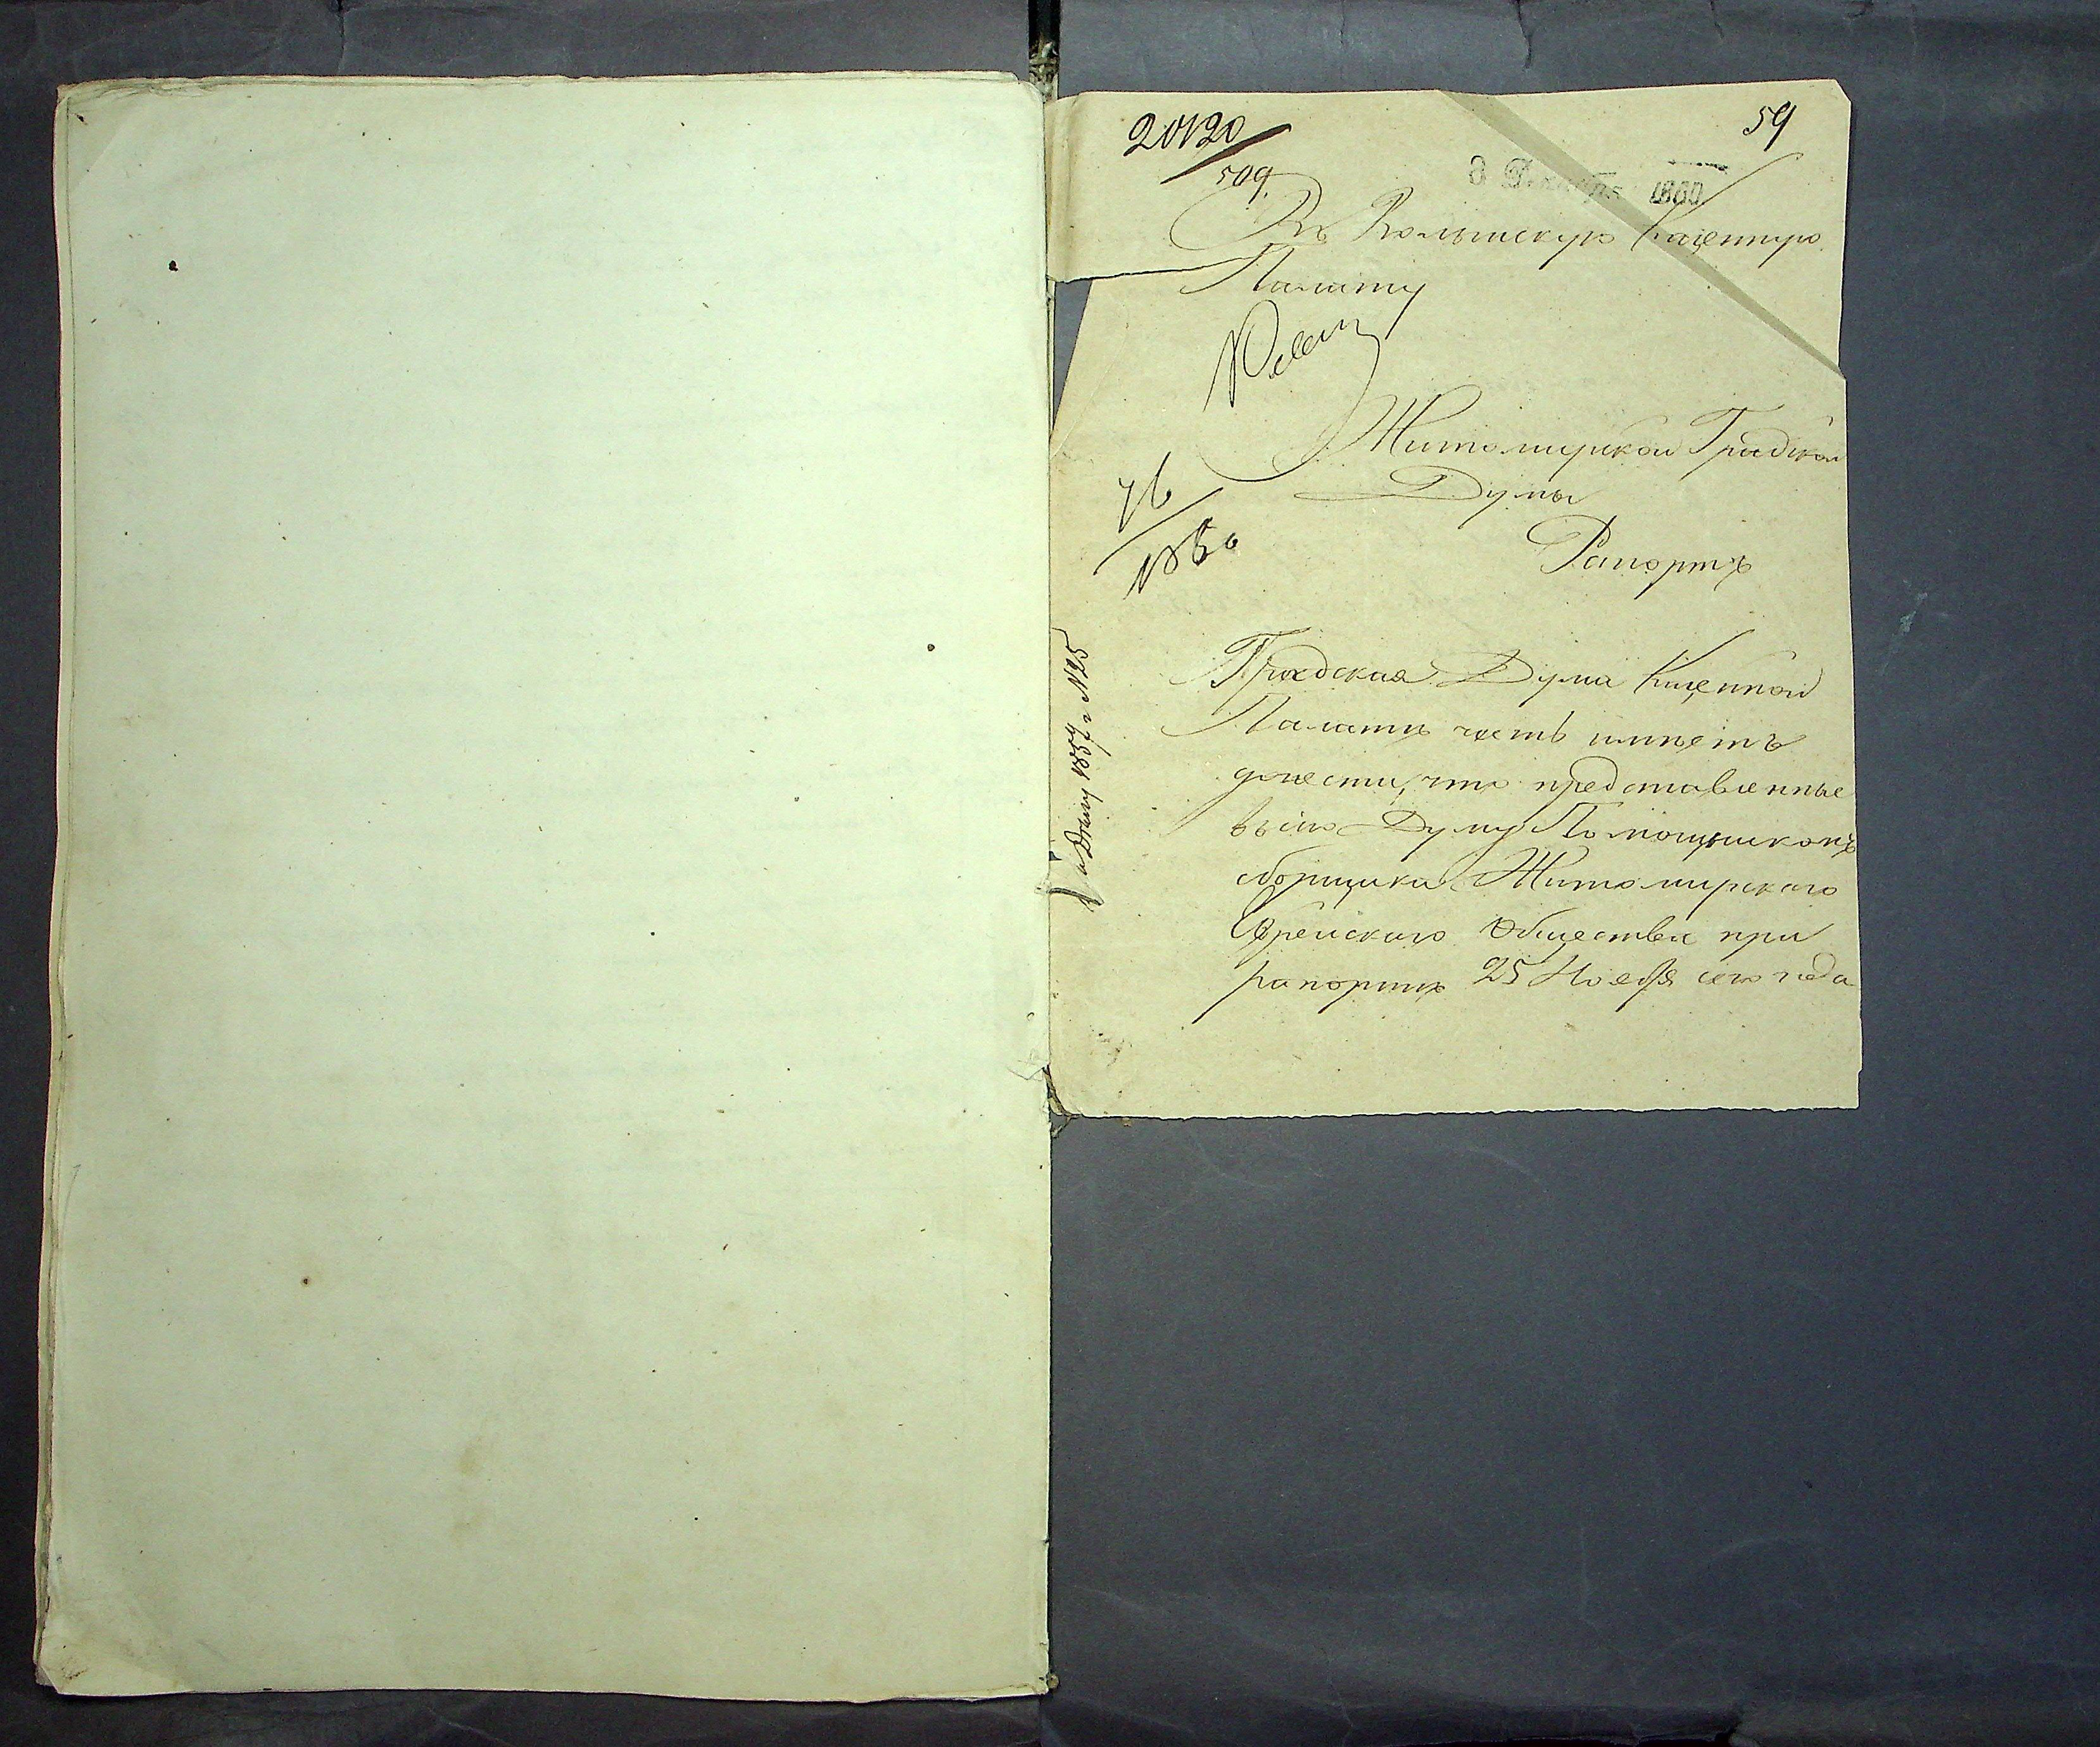 20120
59
509.
8 Декабря 1860
Въ Волынскую Казенную
Палату
Житомирской Градской
Думы
Рапортъ
Градская Дума Казенной
Палатѣ честь имѣетъ
донести, что представленные
въ сию Думу Помощникомъ
сборщика Житомирскаго
Еврейскаго Общества при
рапортѣ 25 Ноября сего года
къ дѣлу 1857 г N25